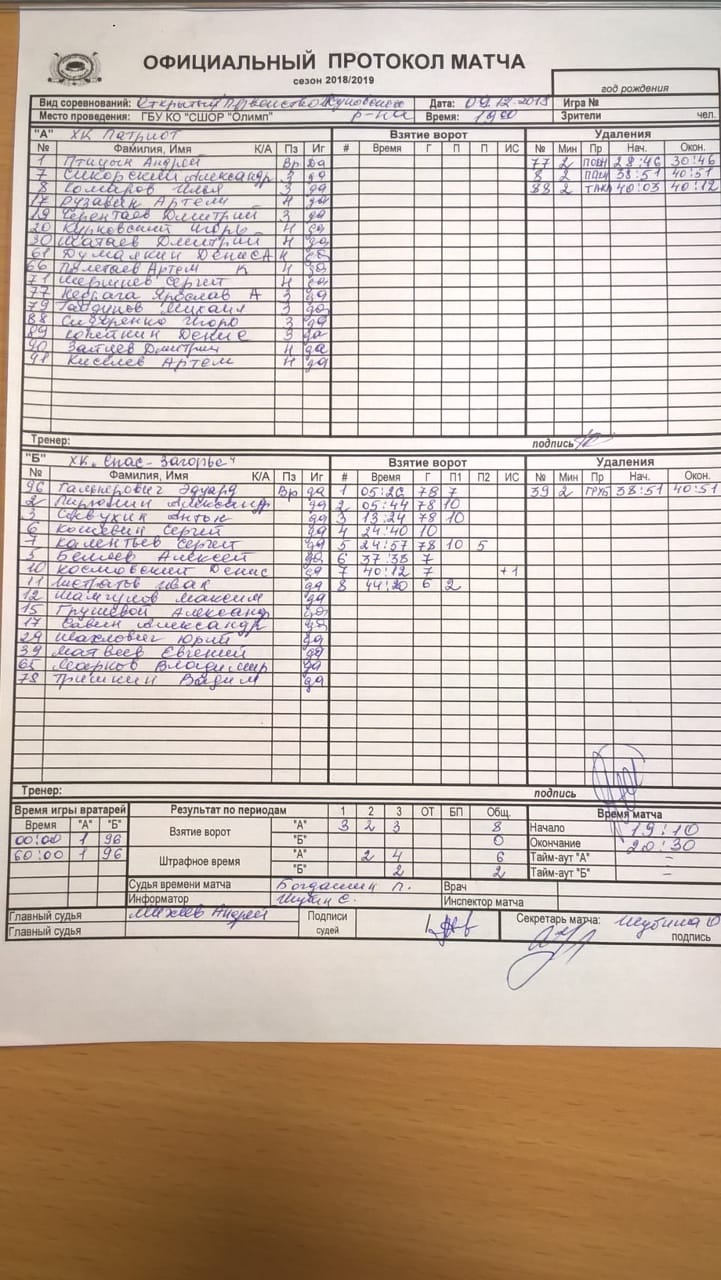 ОФИЦИАЛЬНЫЙ ПРОТОКОЛ МАТЧА
сезон 2018/2019
год рождения
Вид соревнований: Открытый Первенство Дата: 09.12.2018 Игра №
Место проведения: ГБУ КО "СШОР "Олимп" р-на Время: 19 00 Зрители чел.
"А" ХК Патриот Взятие ворот Удаления
№ Фамилия, Имя К/А Пз Иг # Время Г П П ИС № Мин Пр Нач. Окон.
1 Птицын Андрей Вр да 77 2 28:46 30:46
7 Сикорский Александр З да 8 2 38:51 40:51
8 Комаров Илья З да 88 2 40:03 40:12
17 Рузавин Артем Н да
19 Терентаев Дмитрий З да
20 Игорь Н да
30 Шатаев Дмитрий Н да
61 Думалкин Денис А Н да
66 Полетаев Артем К Н да
71 Сергей Н да
77 Ярослав А З да
79 Михаил З да
88 Сидоренко Игорь З да
89 Денис З да
90 Зайцев Дмитрий Н да
98 Киселев Артем Н да
Тренер: подпись
"Б" ХК "Спас-Загорье" Взятие ворот Удаления
№ Фамилия, Имя К/А Пз Иг # Время Г П1 П2 ИС № Мин Пр Нач. Окон.
96 Гальперович Эдуард Вр да 1 05:26 78 7 39 2 38:51 40:51
2 Александр да 2 05:44 78 10
3 Савухин Антон да 3 13:24 78 10
6 Кошевин Сергей да 4 24:40 10
7 Калентьев Сергей да 5 24:57 78 10 5
5 Беляев Алексей да 6 37:35 7
10 Космовский Денис да 7 40:12 7 +1
11 да 8 44:20 6 2
12 Максим да
15 Грушевой Александр да
17 Савин Александр да
29 Махлович Юрий да
39 Матвеев Евгений да
65 Марков Владимир да
78 Тришкин Вадим да
Тренер: подпись
Время игры вратарей Результат по периодам 1 2 3 ОТ БП Общ. Время матча
Время "А" "Б" Взятие ворот "А" 3 2 3 8 Начало 19:10
00:00 1 96 "Б" 0 Окончание 20:30
60:00 1 96 Штрафное время "А" 2 4 6 Тайм-аут "А" –
"Б" 2 2 Тайм-аут "Б" –
Судья времени матча Богдашкин П. Врач
Информатор Шубин С. Инспектор матча
Главный судья Михеев Андрей Подписи судей Секретарь матча: Шубина О
Главный судья подпись